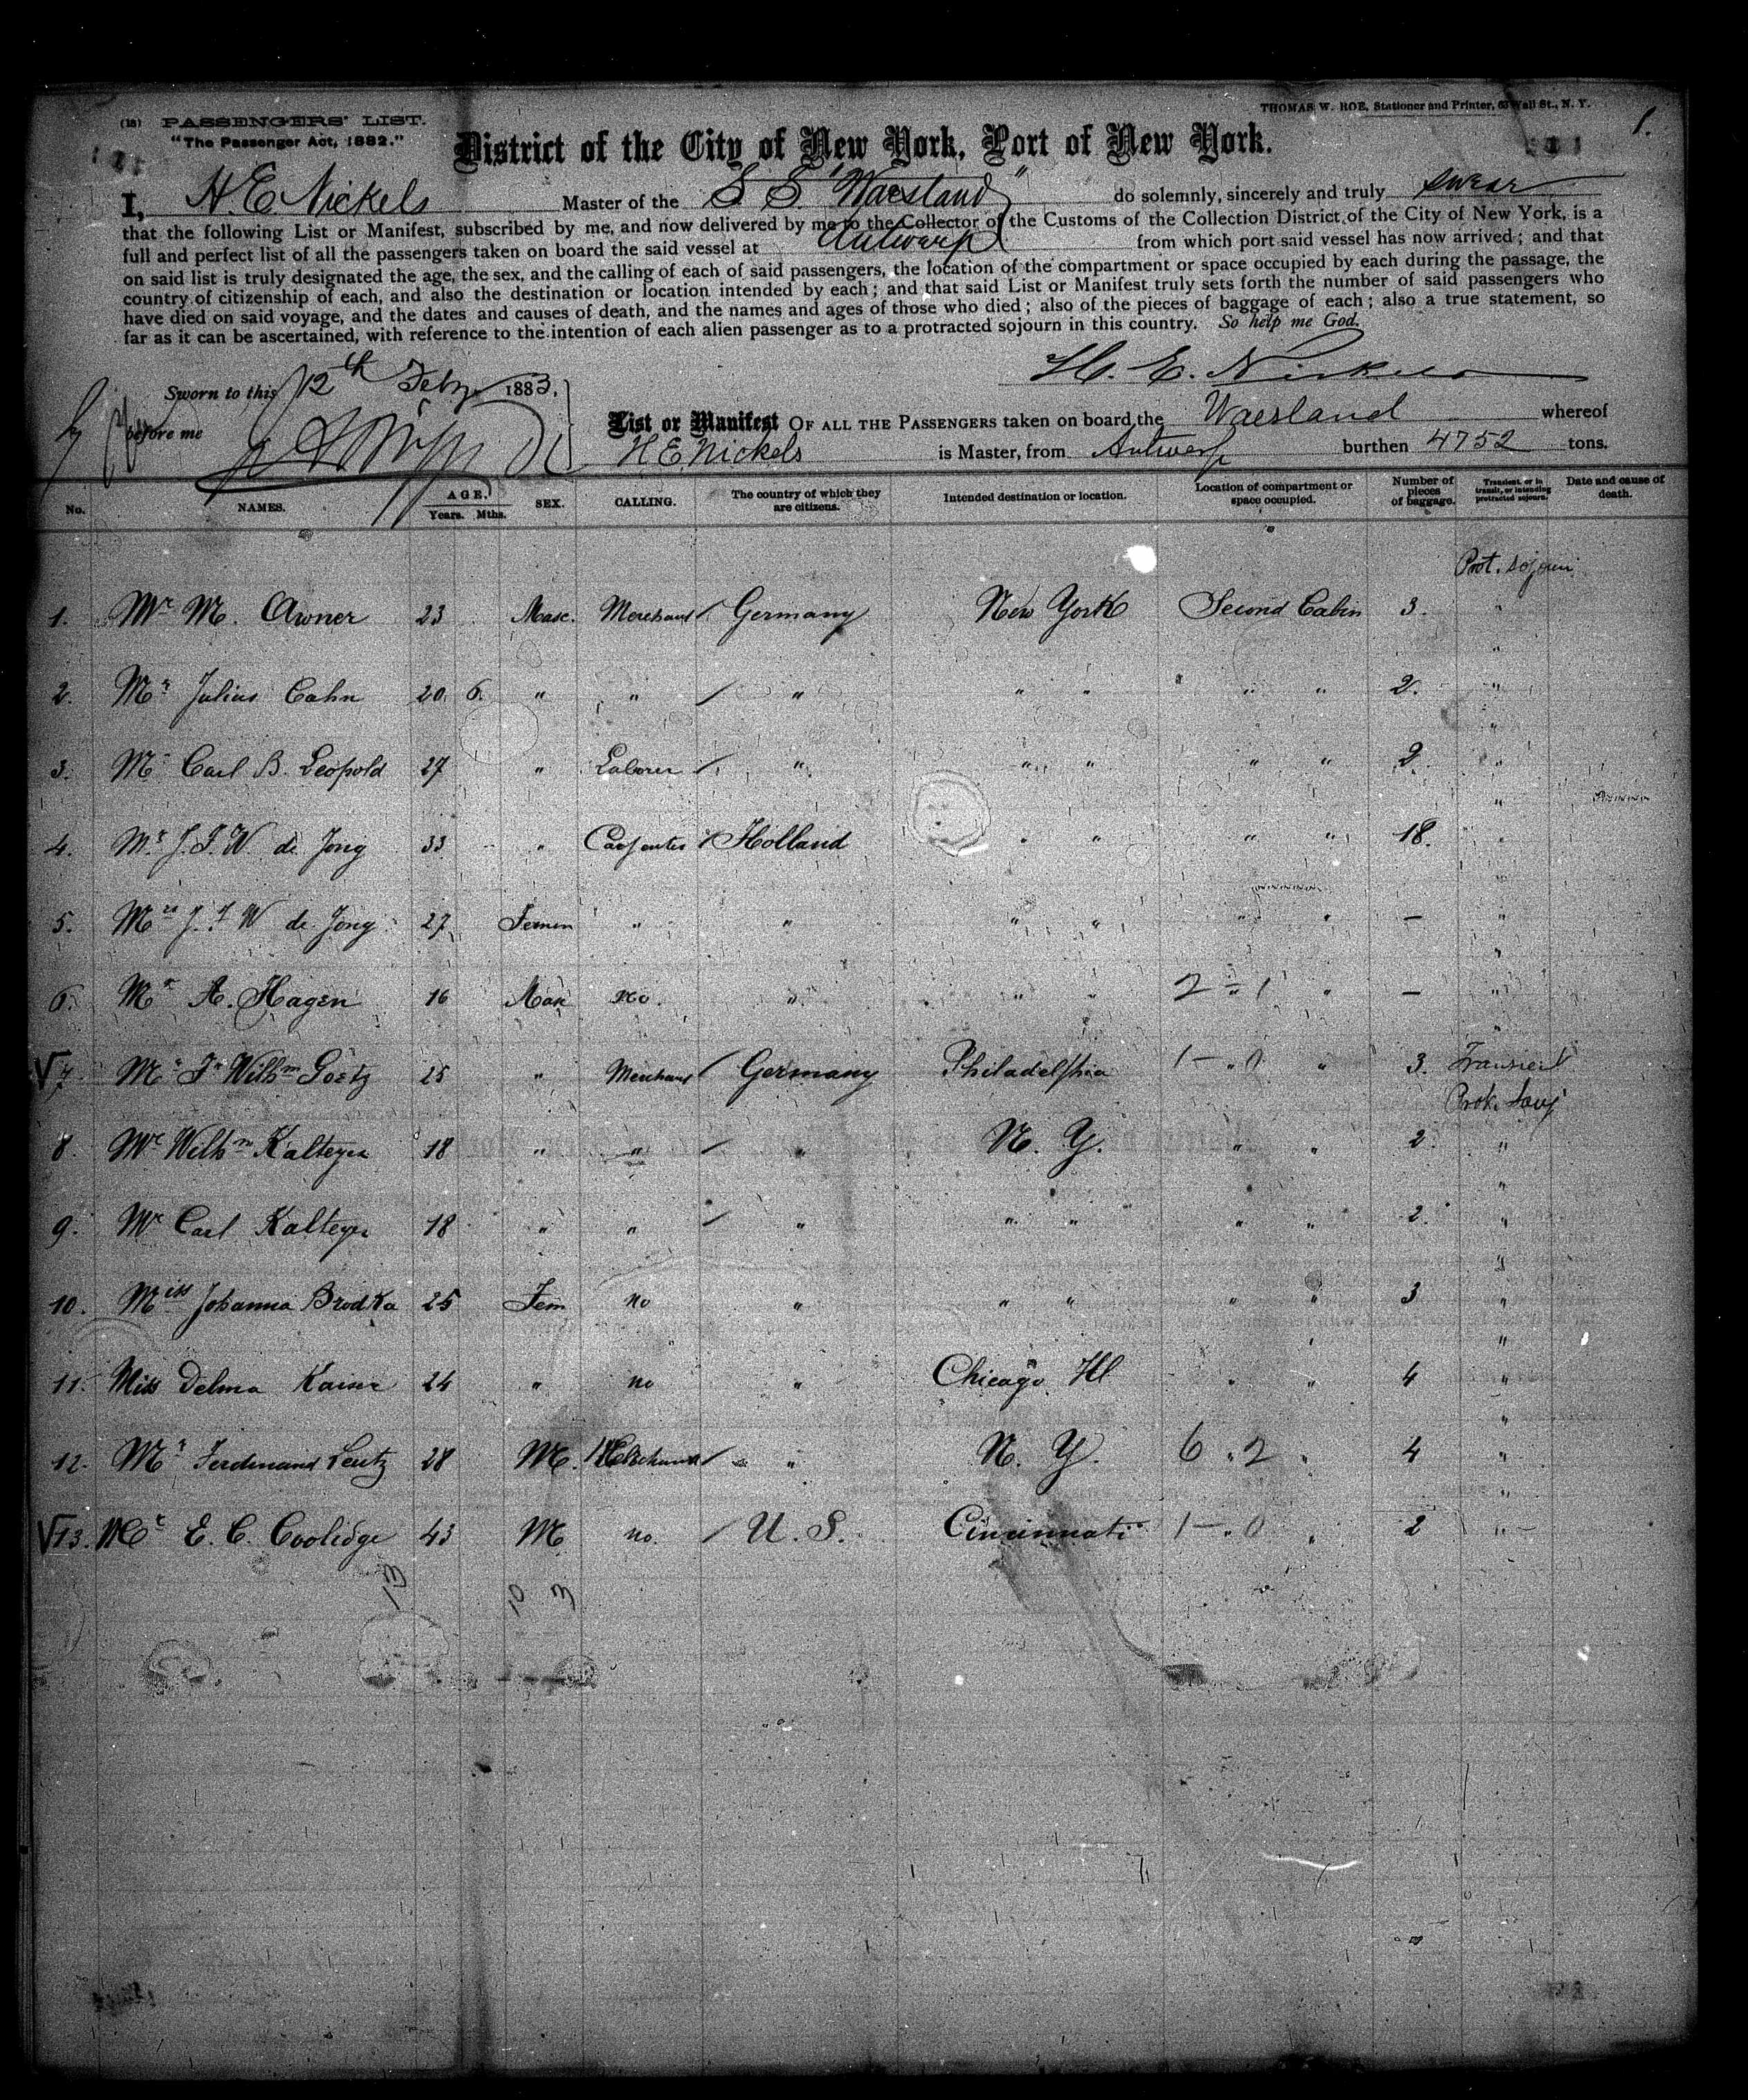 THOMAS W. ROE, Stationer and Printer, 63 Wall St., N. Y.
1.
(18) PASSENGERS' LIST.
"The Passenger Act, 1882."
District of the City of New York, Port of New York.
I, H. E. Nickels Master of the S. S. "Waesland" do solemnly, sincerely and truly swear
that the following List or Manifest, subscribed by me, and now delivered by me to the Collector of the Customs of the Collection District of the City of New York, is a
full and perfect list of all the passengers taken on board the said vessel at Antwerp from which port said vessel has now arrived; and that
on said list is truly designated the age, the sex, and the calling of each of said passengers, the location of the compartment or space occupied by each during the passage, the
country of citizenship of each, and also the destination or location intended by each; and that said List or Manifest truly sets forth the number of said passengers who
have died on said voyage, and the dates and causes of death, and the names and ages of those who died; also of the pieces of baggage of each; also a true statement, so
far as it can be ascertained, with reference to the intention of each alien passenger as to a protracted sojourn in this country. So help me God.
H. E. Nickels
Sworn to this 12th Feby 1883,
before me
List or Manifest OF ALL THE PASSENGERS taken on board the Waesland whereof
H E Nickels is Master, from Antwerp burthen 4752 tons.
No. NAMES. AGE. Years. Mths. SEX. CALLING. The country of which they are citizens. Intended destination or location. Location of compartment or space occupied. Number of pieces of baggage. Transient, or in transit, or intending protracted sojourn. Date and cause of death.
Prot. sojourn
1. Mr M. Awner 23 Masc. Merchant Germany New York Second Cabin 3. "
2. Mr Julius Cahn 20 6. " " " " " " " 2. "
3. Mr Carl B. Leopold 27 " Laborer " " " " " 2. "
4. Mr J. F. W de Jong 33 " Carpenter Holland " " " " 18. "
5. Mrs J. F. W de Jong 27 Femin " " " " " " — "
6. Mr A. Hagen 16 Masc no. " " " 2 - 1 " — "
√7. Mr Fr Wilhm Goetz 25 " Merchant Germany Philadelphia 1 - 0 " 3. Transient
Prot. Souj
8. Mr Wilhm Kalteyer 18 " " " N. Y. " " 2. "
9. Mr Carl Kalteyer 18 " " " " " " " 2. "
10. Miss Johanna Brodka 25 Fem no " " " " " 3 "
11. Miss Delma Kaiser 24 " no " Chicago Ill " " 4 "
12. Mr Ferdinand Leutz 28 M. Merchant " N. Y. 6 " 2 " 4 "
√13. Mr E. C. Coolidge 43 M no. U. S. Cincinnati 1 - 0 " 2 "
13 10 3